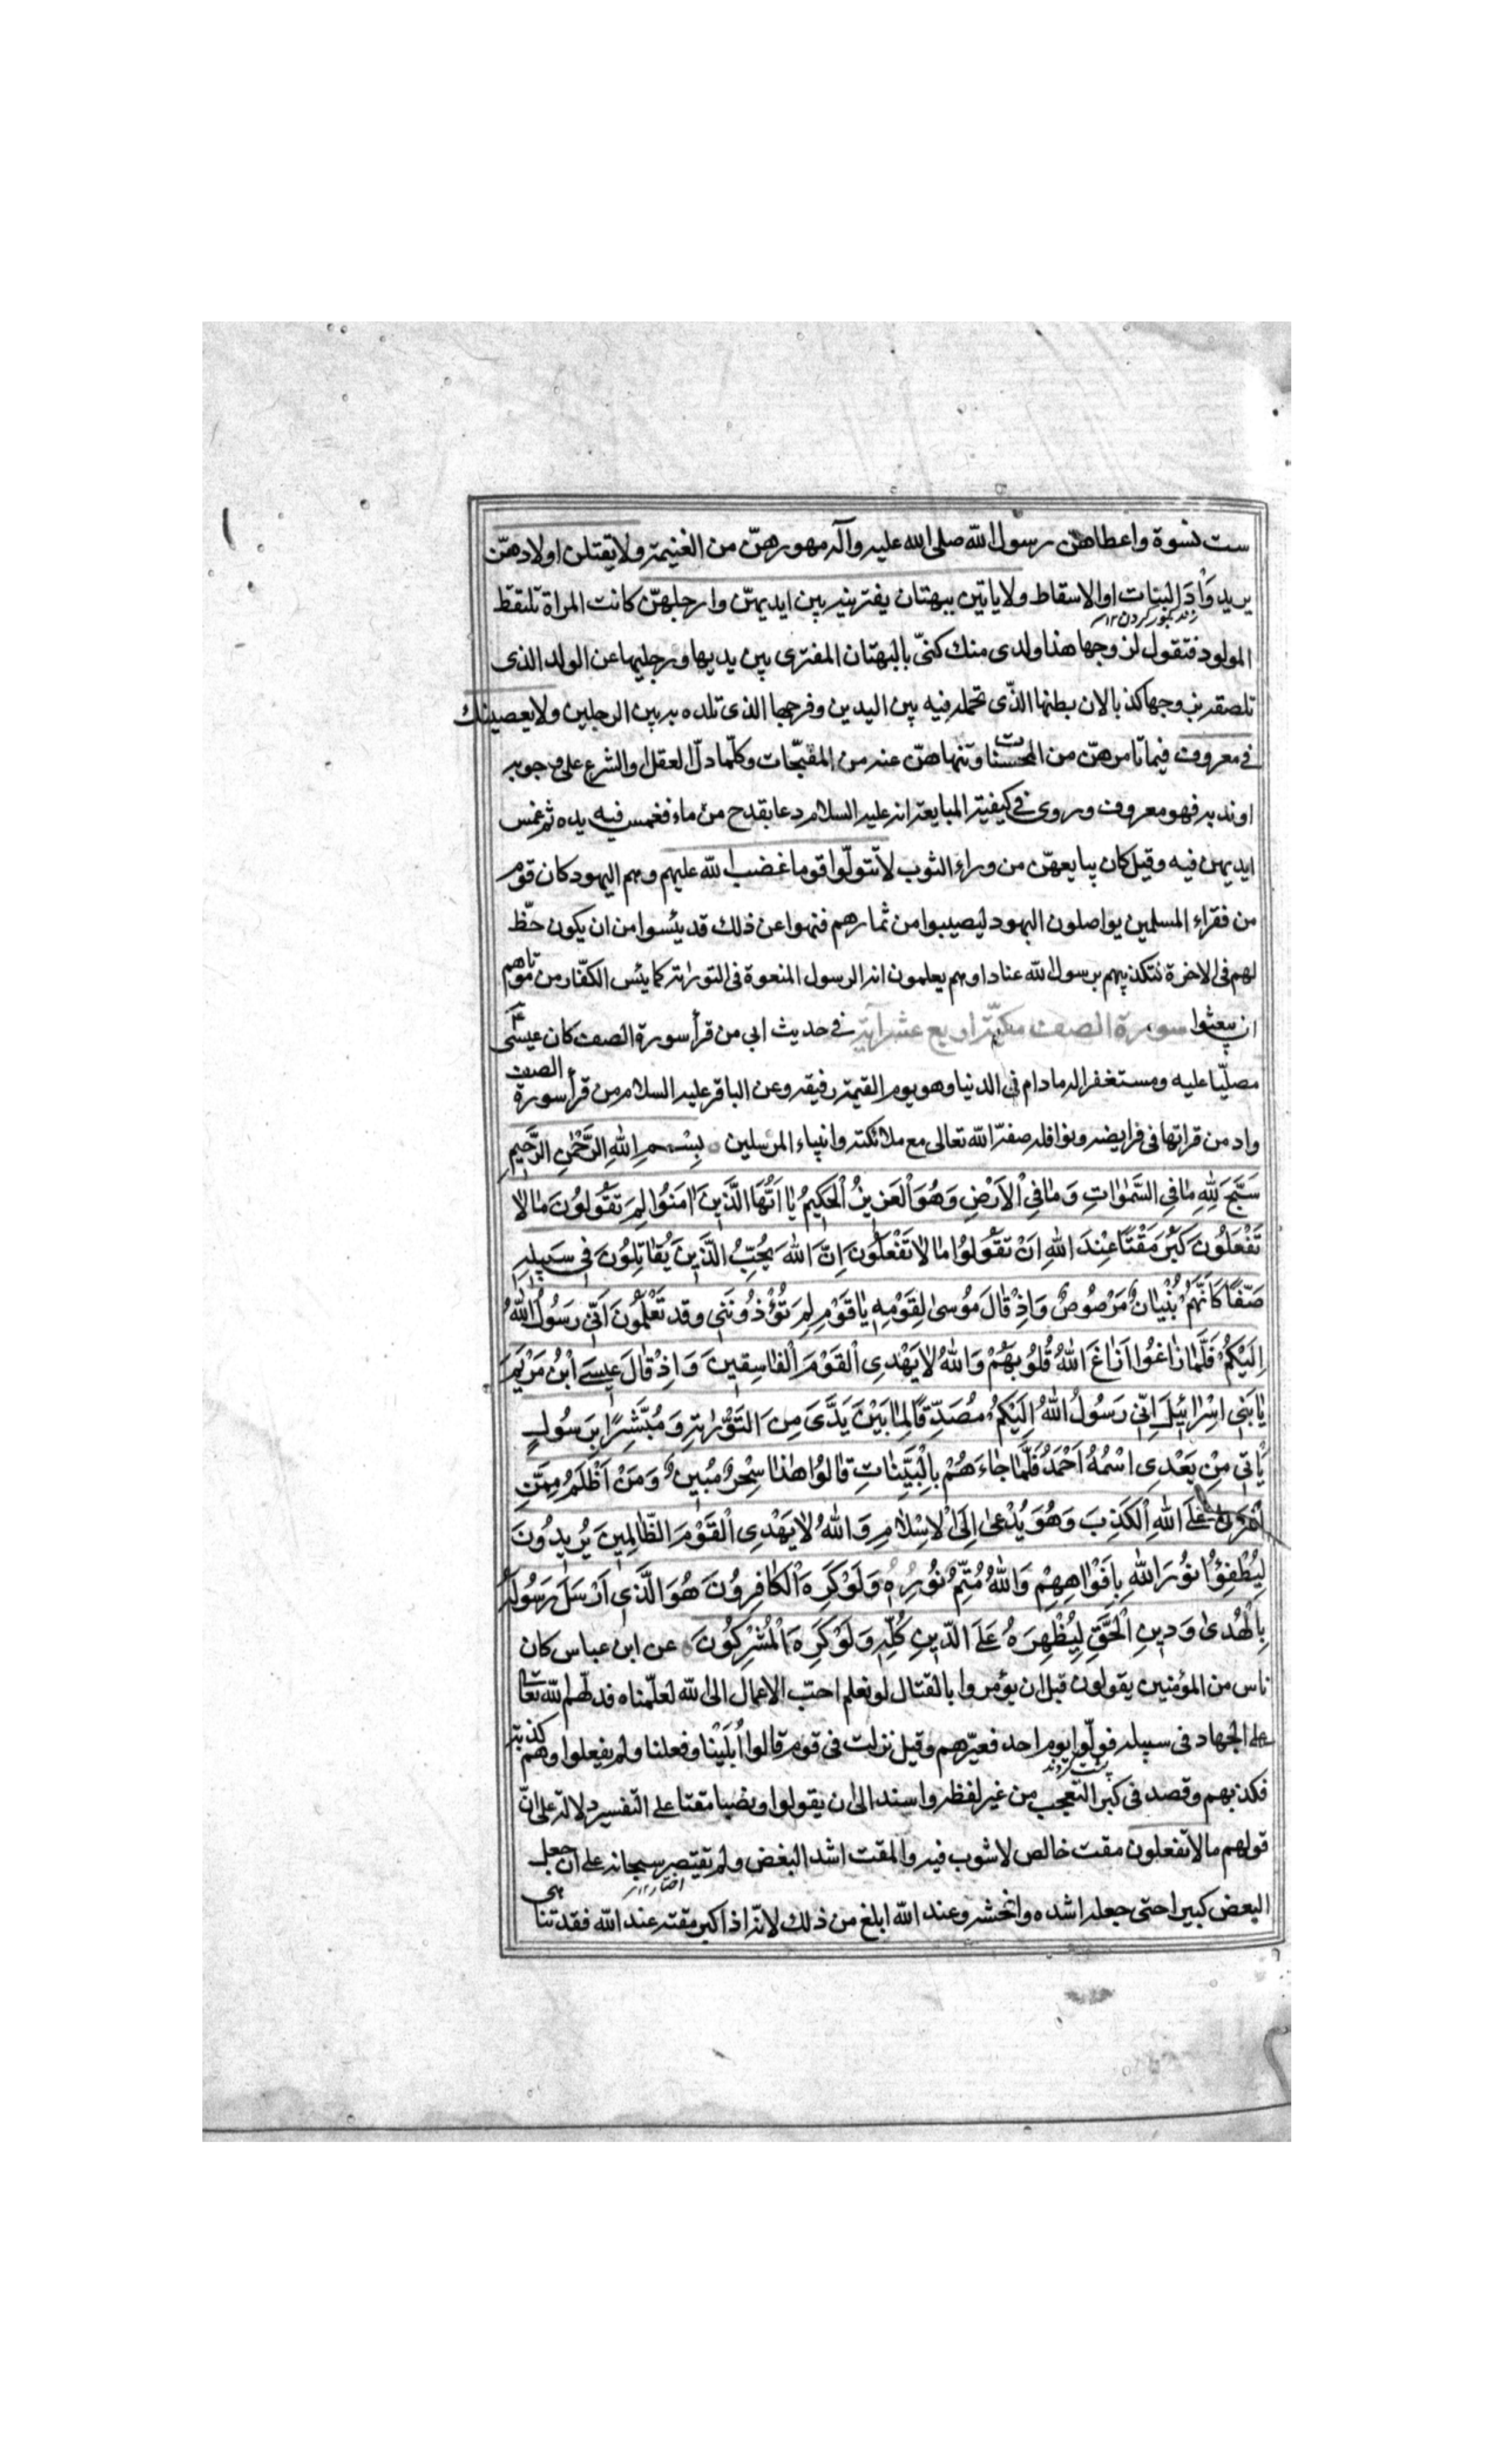 ست نسوة واعطاهنّ رسول اللّه صلى الله عليه وآله مهورهنّ من الغنيمة ولا يقتلن اولادهنّ
يريد وَأدَ البنات او الاسقاط ولا ياتين ببهتان يفترينه بين ايديهنّ وارجلهنّ كانت المراة تلتقط
المولود فتقول لزوجها هذا ولدى منك كنىّ بالبهتان المفترى بين يديها ورجليها عن الولد الذى
تلصقه بزوجها كذبا لان بطنها الذّى تحمله فيه بين اليدين وفرجها الذى تلده به بين الرجلين ولا يعصينك
في معروف فيما تامرهنّ من المحسنات وتنهاهنّ عنه من المقبّحات وكلّما دلّ العقل والشرع على وجوبه
او ندبه فهو معروف وروى في كيفية المبايعة انه عليه السلام دعا بقدح من ماء فغمس فيه يده ثم غمس
ايديهن فيه وقيل كان يبايعهنّ من وراء الثوب لا تتولّوا قوما غضب اللّه عليهم وهم اليهود كان قوم
من فقراء المسلمين يواصلون اليهود ليصيبوا من ثمارهم فنهوا عن ذلك قد يئسوا من ان يكون حظّ
لهم فى الاخرة لتكذيبهم برسول اللّه عنادا وهم يعلمون انه الرسول المنعوة فى التورٰىة كما يئس الكفّار من موتاهم
ان يبعثوا سورة الصف مكيّة اربع عشر آية في حديث ابي من قرأ سورة الصف كان عيسىٰ
مصلّيا عليه ومستغفرا له مادام فى الدنيا وهو يوم القيمة رفيقه وعن الباقر عليه السلام من قرأ سورة الصف
وادمن قراتها فى فرايضه ونوافله صفّه اللّه تعالى مع ملائكته وانبياء المرسلين بِسْمِ اللهِ الرَّحْمٰنِ الرَّحِيمِ
سَبَّحَ لِلّٰهِ مٰا فِي السَّمٰوٰاتِ وَمٰا فِي الْاَرْضِ وَهُوَ الْعَزِيزُ الْحَكِيمُ يٰا اَيُّهَا الَّذِينَ اٰمَنُوا لِمَ تَقُولُونَ مٰا لاٰ
تَفْعَلُونَ كَبُرَ مَقْتًا عِنْدَ اللهِ اَنْ تَقُولُوا مٰا لاٰ تَفْعَلُونَ اِنَّ اللهَ يُحِبُّ الَّذِينَ يُقٰاتِلُونَ فِي سَبِيلِهِ
صَفًّا كَاَنَّهُمْ بُنْيٰانٌ مَرْصُوصٌ وَاِذْ قٰالَ مُوسىٰ لِقَوْمِهِ يٰا قَوْمِ لِمَ تُؤْذُونَنِي وَقَد تَعْلَمُونَ اَنِّي رَسُولُ اللهِ
اِلَيْكُمْ فَلَمّٰا زٰاغُوا اَزٰاغَ اللهُ قُلُوبَهُمْ وَاللهُ لاٰ يَهْدِي الْقَوْمَ الْفٰاسِقِينَ وَاِذْ قٰالَ عِيسَى ابْنُ مَرْيَمَ
يٰا بَنِي اِسْرٰائِيلَ اِنِّي رَسُولُ اللهِ اِلَيْكُمْ مُصَدِّقًا لِمٰا بَيْنَ يَدَيَّ مِنَ التَّوْرٰىةِ وَمُبَشِّرًا بِرَسُولٍ
يَاْتِي مِنْ بَعْدِي اسْمُهُ اَحْمَدُ فَلَمّٰا جٰاءَهُمْ بِالْبَيِّنٰاتِ قٰالُوا هٰذٰا سِحْرٌ مُبِينٌ وَمَنْ اَظْلَمُ مِمَّنِ
افْتَرىٰ عَلَى اللهِ الْكَذِبَ وَهُوَ يُدْعىٰ اِلَى الْاِسْلاٰمِ وَاللهُ لاٰ يَهْدِي الْقَوْمَ الظّٰالِمِينَ يُرِيدُونَ
لِيُطْفِؤُا نُورَ اللهِ بِاَفْوٰاهِهِمْ وَاللهُ مُتِمُّ نُورِهِ وَلَوْ كَرِهَ الْكٰافِرُونَ هُوَ الَّذِي اَرْسَلَ رَسُولَهُ
بِالْهُدىٰ وَدِينِ الْحَقِّ لِيُظْهِرَهُ عَلَى الدِّينِ كُلِّهِ وَلَوْ كَرِهَ الْمُشْرِكُونَ عن ابن عباس كان
ناس من المؤمنين يقولون قبل ان يؤمروا بالقتال لو نعلم احبّ الاعمال الى اللّه لعلمناه فدلّهم اللّه تعالى
على الجهاد فى سبيله فولّوا يوم احد فعيّرهم وقيل نزلت فى قوم قالوا اَبلَيْنا وفعلنا ولم يفعلوا وهم كذبة
فكذبهم وقصد فى كبر التعجب من غير لفظه واسند الى ان يقولوا ونصبا مقتا على التفسير دلالة على انّ
قولهم ما لا تفعلون مقت خالص لا شوب فيه والمقت اشد البغض ولم تقتصر سبحانه على ان جعل
البغض كبيرا حتى جعله اشده وافحشه وعند اللّه ابلغ من ذلك لانّه اذا كبر مقته عند اللّه فقد تناهى